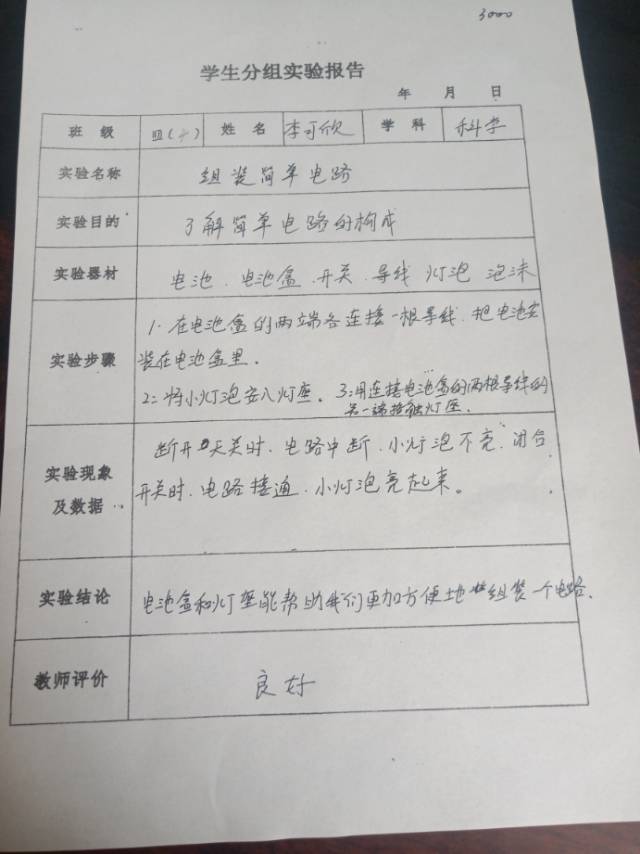 3000
学生分组实验报告
年 月 日
班 级 四(十) 姓 名 李可欣 学 科 科学
实验名称 组装简单电路
实验目的 了解简单电路的构成
实验器材 电池、电池盒、开关、导线 灯泡 泡沫
1、在电池盒的两端各连接一根导线、把电池安
实验步骤 装在电池盒里。
2、将小灯泡安入灯座。 3、用连接电池盒的两根导线的
另一端接触灯座。
断开开关时、电路中断、小灯泡不亮、闭合
实验现象
开关时、电路接通、小灯泡亮起来。
及数据
实验结论 电池盒和灯座能帮助我们更加方便地组装一个电路、
教师评价 良好